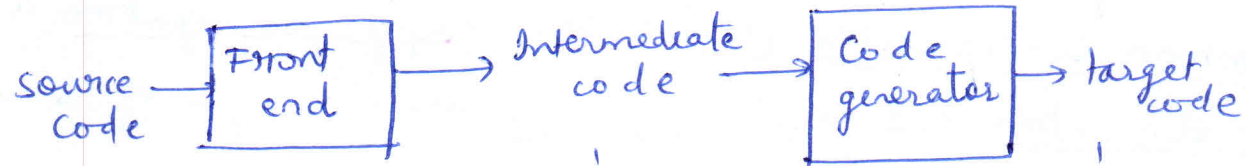 source
code
Front
end
Intermediate
code
Code
generator
target
code